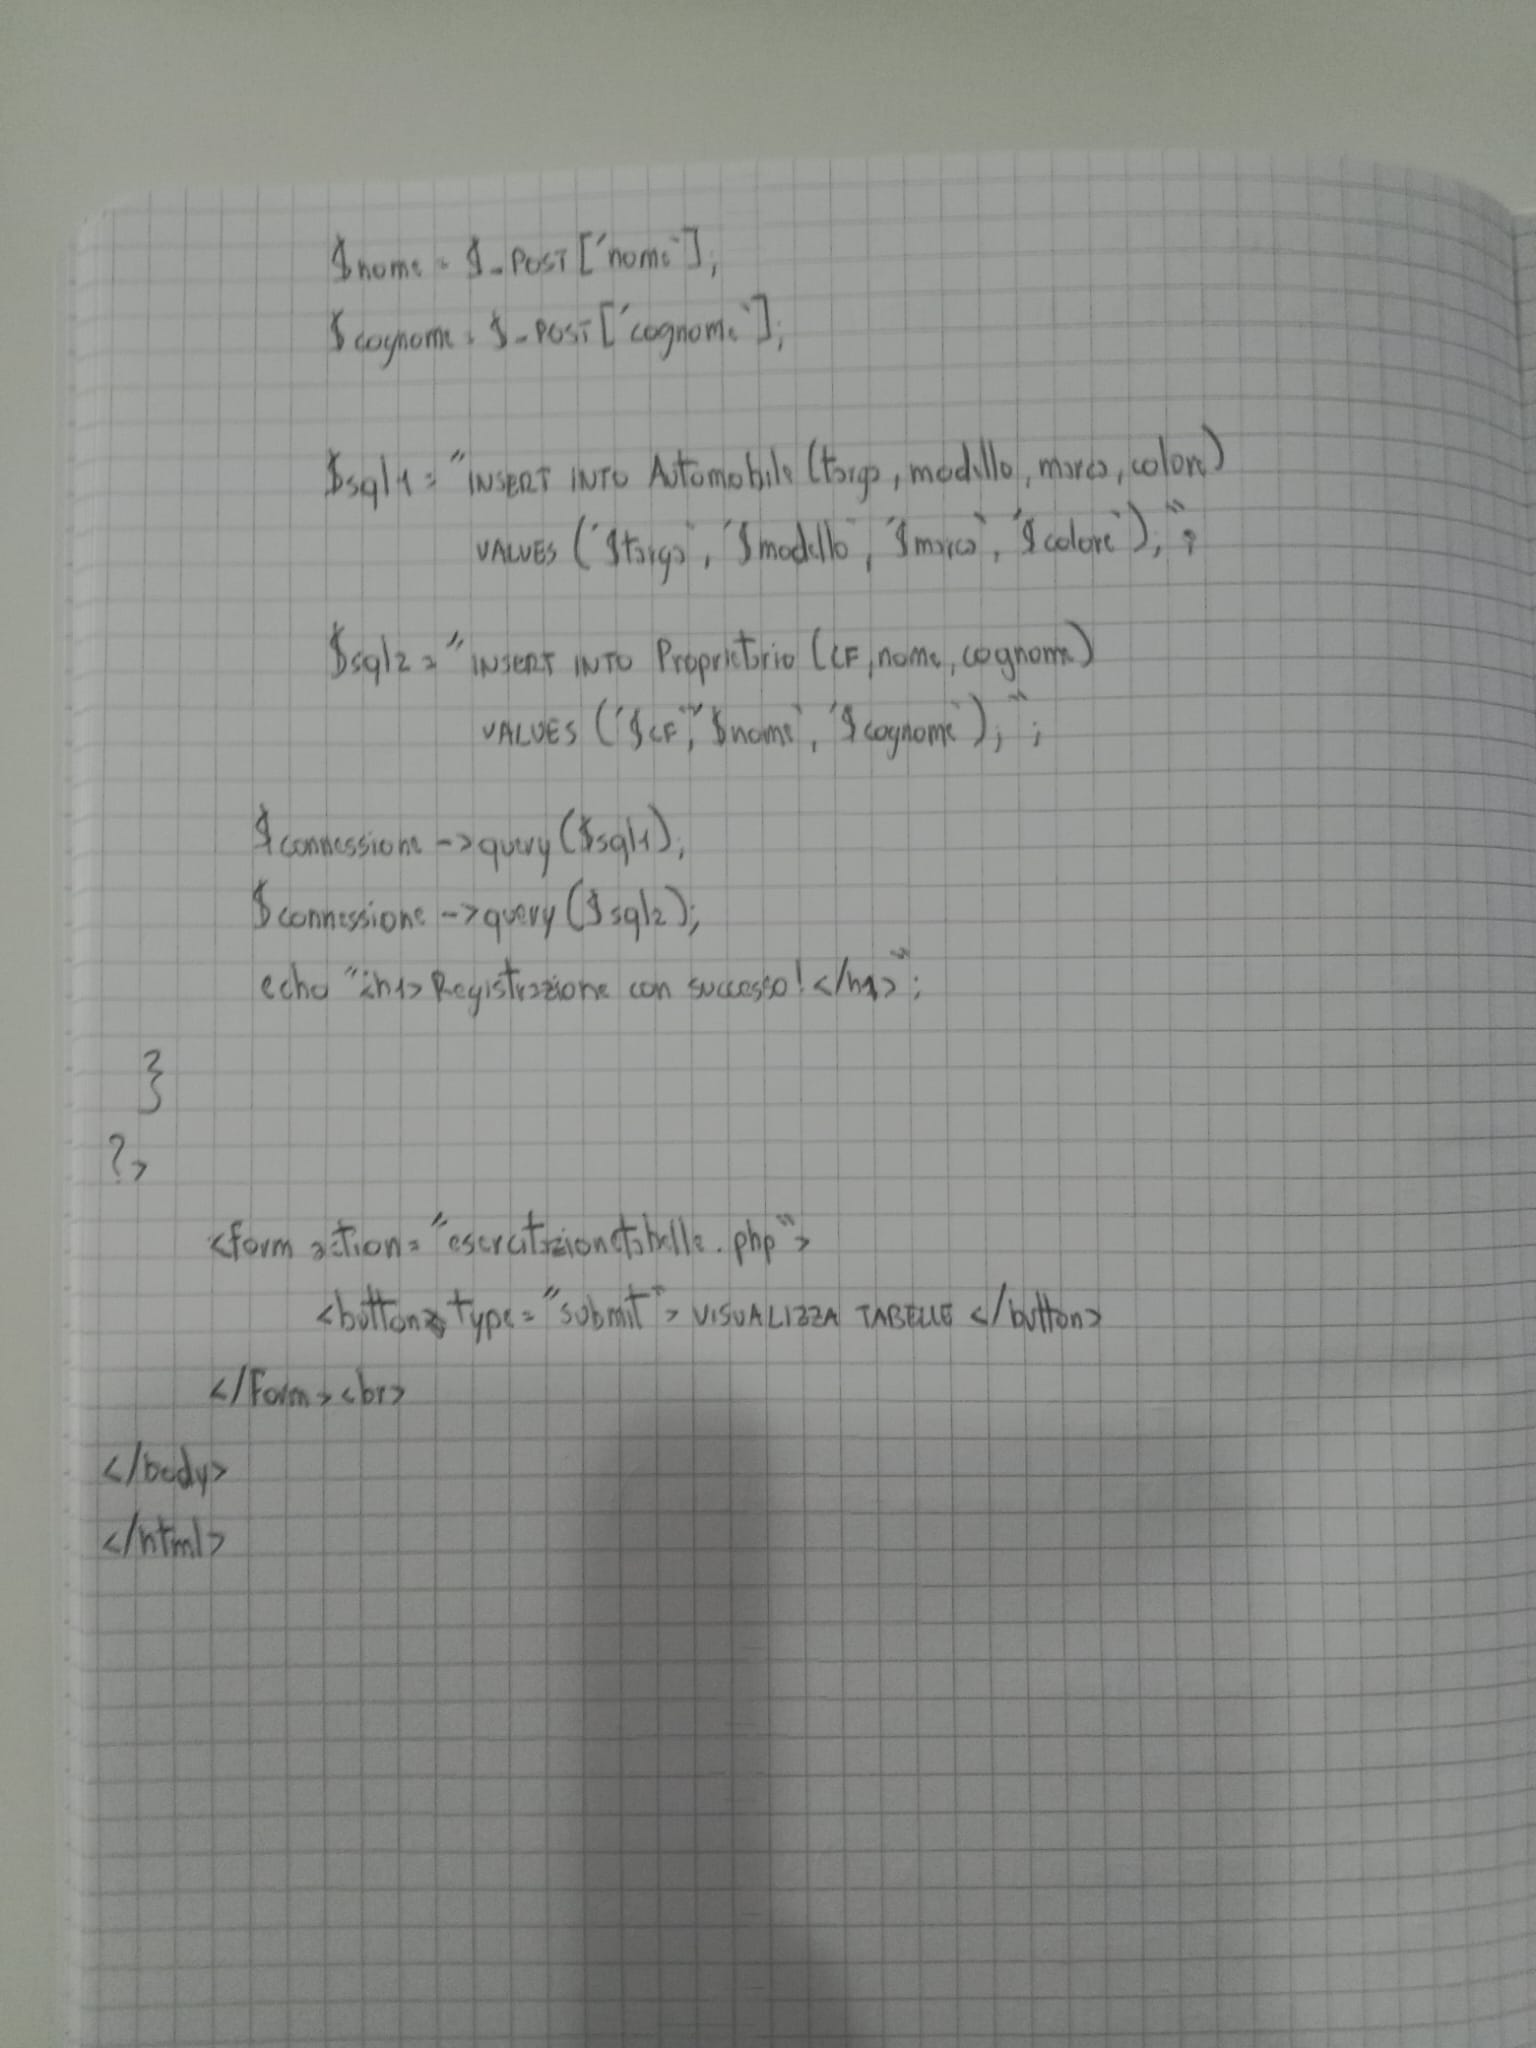 $nome = $_POST['nome'];
$cognome = $_POST['cognome'];
$sql1 = "INSERT INTO Automobile (targa, modello, marca, colore)
VALUES ('$targa', '$modello', '$marca', '$colore');";
$sql2 = "INSERT INTO Proprietario (CF, nome, cognome)
VALUES ('$CF', '$nome', '$cognome');";
$connessione ->query($sql1);
$connessione ->query($sql2);
echo "<h1>Registrazione con successo!</h1>";
}
?>
<form action="esercitazionetabelle.php">
<button type="submit"> VISUALIZZA TABELLE </button>
</form><br>
</body>
</html>